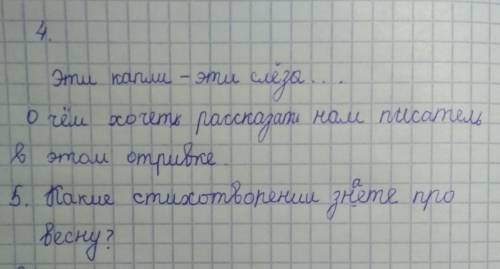 4.
Эти капли - эти слёза...
О чём хочеть рассказати нам писатель
в этом отривке.
5. Какие стихотворении знаете про
весну?